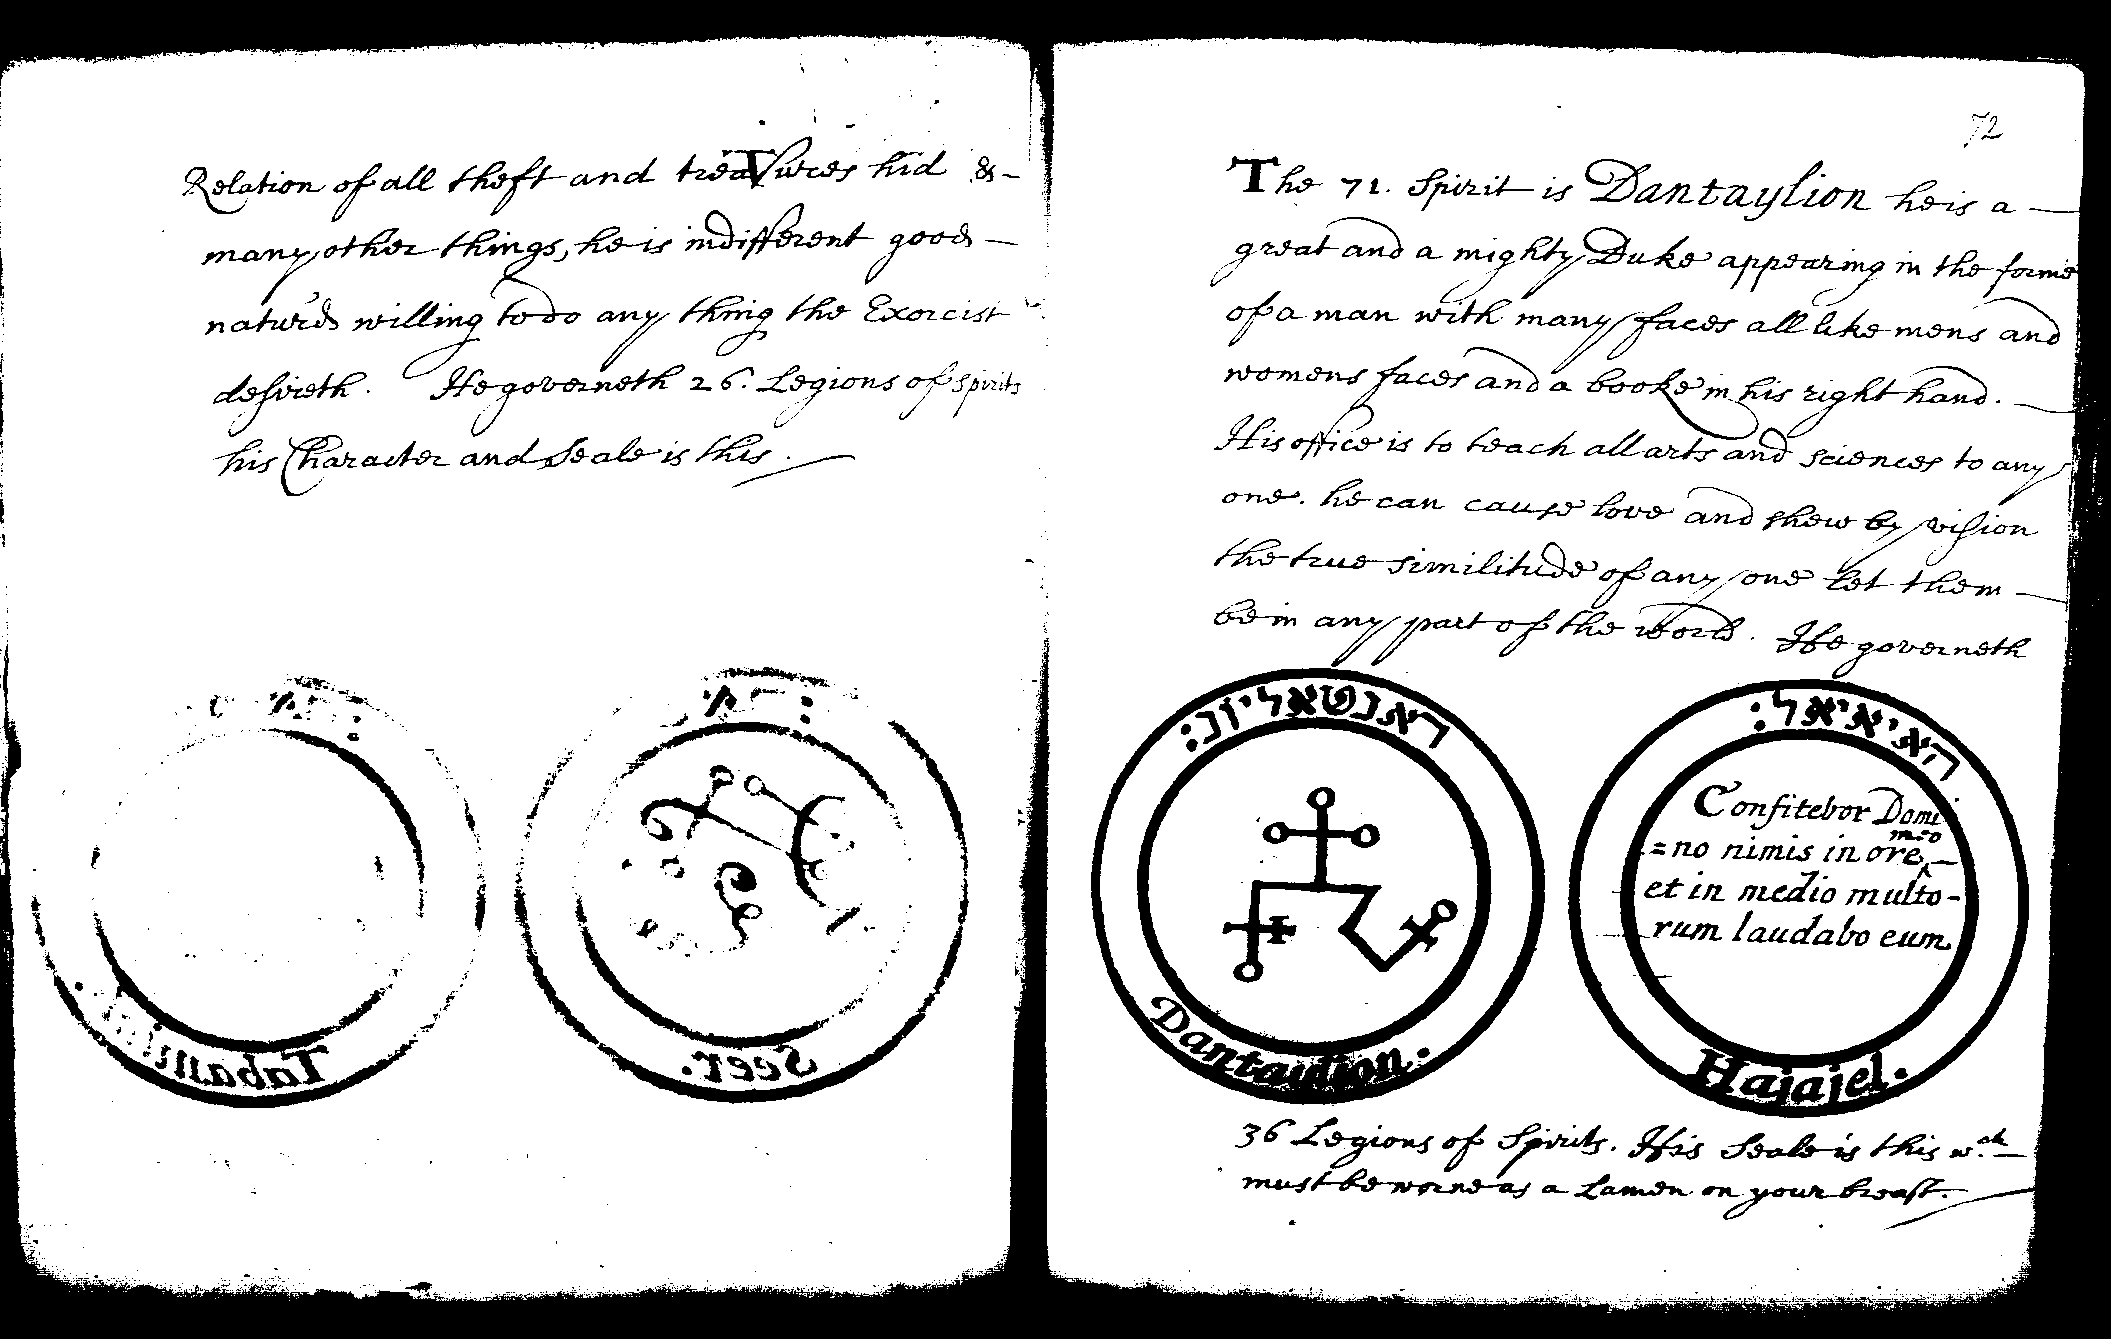 Relation of all theft and treasures hid &-
many other things, he is indifferent good -
natured willing to do any thing the Exorcist
desireth. He governeth 26. Legions of spirits
his Character and Seale is this.
Seer.
72
The 71. Spirit is Dantaylion he is a —
great and a mighty Duke appearing in the forme
of a man with many faces all like mens and
womens faces and a booke in his right hand. —
His office is to teach all arts and sciences to any
one. he can cause love and shew by vision
the true similitude of any one let them —
be in any part of the world. He governeth
דאנטאליונ:
Dantaylion.
האיאיאל:
Confitebor Domi
meo
=no nimis in ore —
et in medio multo-
rum laudabo eum
Hajajel.
36 Legions of Spirits. His Seale is this w.ch —
must be worne as a Lamen on your breast.